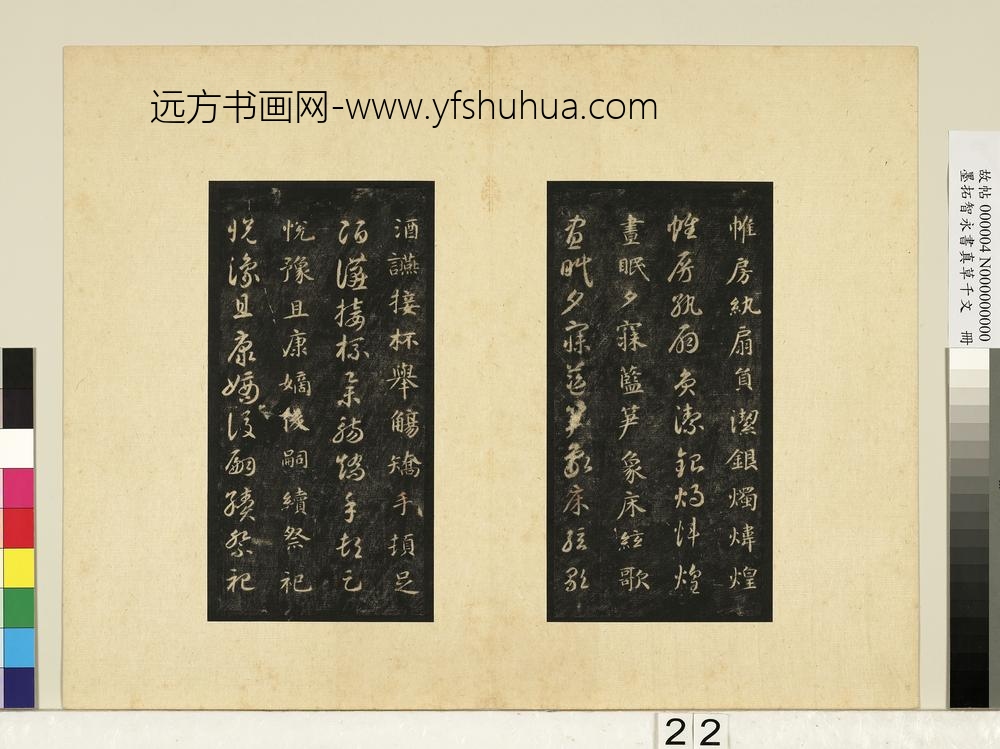 远方书画网-www.yfshuhua.com
帷房紈扇負潔銀燭煒煌
帷房紈扇負潔銀燭煒煌
晝眠夕寐藍笋象床絃歌
晝眠夕寐藍笋象床絃歌
酒讌接杯舉觴矯手頓足
酒讌接杯舉觴矯手頓足
悅豫且康嫡後嗣續祭祀
悅豫且康嫡後嗣續祭祀
故帖 000004 N000000000
墨拓智永書真草千文 冊
22